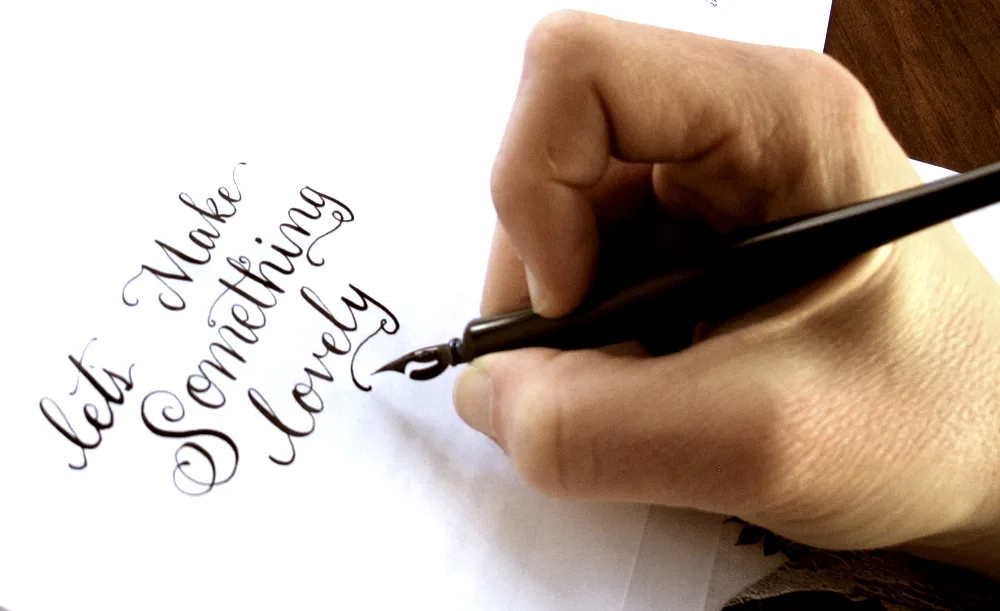 let's Make
Something
lovely